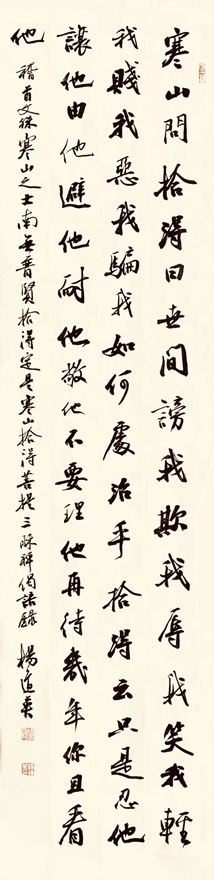 寒山問拾得曰世間謗我欺我辱我笑我輕
我賤我惡我騙我如何處治乎拾得云只是忍他
讓他由他避他耐他敬他不要理他再待幾年你且看
他
稽首文殊寒山之士南無普賢拾得定是寒山拾得菩提三昧禪偈語錄